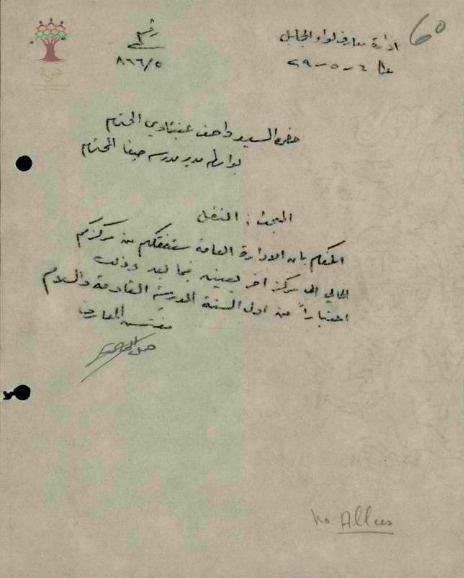 60
ادارة معارف لواء الجليل
رقم
٨٦٦/٥
حضرة السيد واصف المحترم
بواسطة مدير مدرسة صفد المحترم
المبحث: النقل
اعلمكم بان الادارة العامة ستنقلكم من مركزكم
الحالي الى مركز آخر يعينه فيما بعد وذلك
اعتباراً من اول السنة المدرسية القادمة والسلام
مفتش المعارف
No